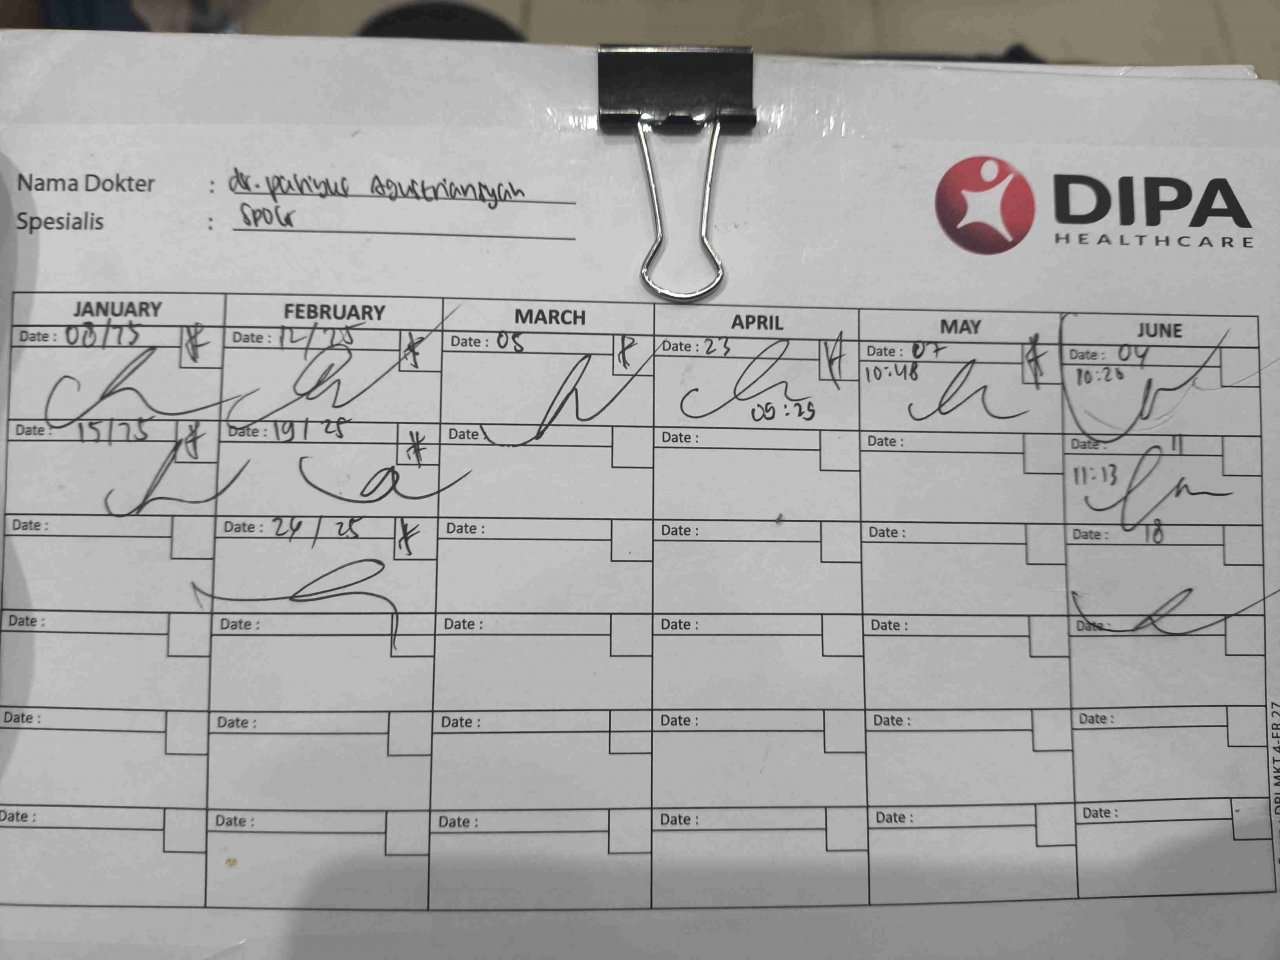 DIPA
HEALTHCARE
Nama Dokter : dr. Agustriansyah
Spesialis : SpOG
JANUARY FEBRUARY MARCH APRIL MAY JUNE
Date : 08/25 Date : 12/25 Date : 05 Date : 23 Date : 07 Date : 04
09:29 10:48 10:20
Date : 15/25 Date : 19/25 Date Date : Date : Date : 11
11:13
Date : Date : 24/25 Date : Date : Date : Date : 18
Date : Date : Date : Date : Date : Date:
Date : Date : Date : Date : Date : Date :
Date : Date : Date : Date : Date : Date :